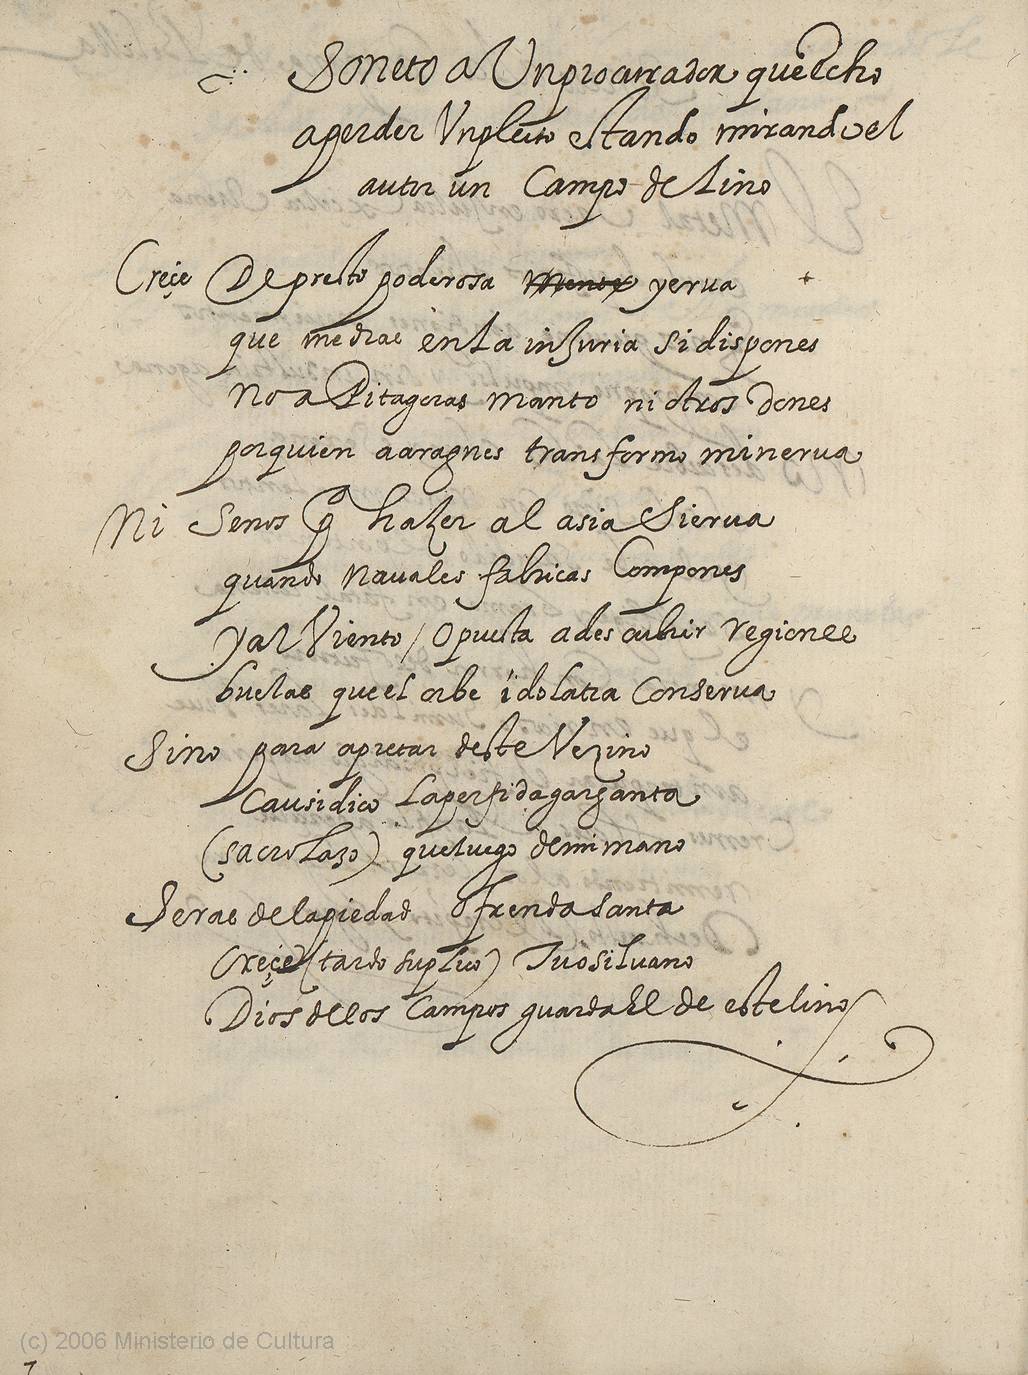 Soneto a Un procurador que Echo
a perder Un pleito estando mirando el
autor un Campo de Lino
Creçe De presto poderosa yerua
que medras en La inJuria si dispones
No a Pitagoras manto ni otros dones
por quien a aragnes transformo minerua
Ni Senos q hazer al asia Sierua
quando Nauales fabricas Compones
y al Viento / Opuesta a descubrir Regiones
buelas que el orbe idolatra Conserua
Sino para apretar deste Vezino
Causidico La perfida garganta
(sacro Lazo) que luego de mi mano
Seras de la piedad Ofrenda santa
Creçe (tardo suplico) Tuo siluano
Dios de los Campos guardable de este lino
(c) 2006 Ministerio de Cultura